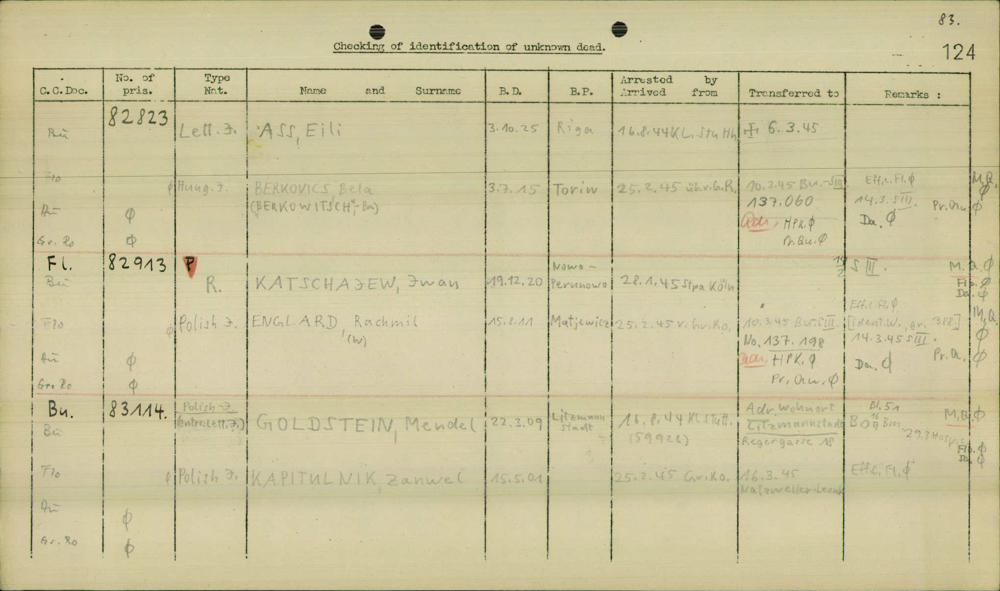 83.
124
Checking of identification of unknown dead.
C.C.Doc. No. of pris. Type Nat. Name and Surname B.D. B.P. Arrested by Arrived from Transferred to Remarks :
82823
Bu Lett. J. ASS, Eili 3.10.25 Riga 16.8.44 KL. Stutth. 6.3.45
Flo Hung. J. BERKOVICS, Bela 3.7.15 Torin 25.2.45 10.2.45 Bu.-SIII Eff.i.Fl.ϕ M.Q.
(BERKOWITSCH, Be) 137.060 14.3. SIII ϕ
Au ϕ HPK.ϕ Da. ϕ Pr.Qu.ϕ
Gr. Ro ϕ Pr.Qu.ϕ
Fl. 82913 P Nowo- S III. M.Q.ϕ
Bu R. KATSCHAJEW, Iwan 19.12.20 Perunowo 28.1.45 Stpa Köln Flo.ϕ
Da.ϕ
Flo ϕ Polish J. ENGLARD, Rachmil 15.2.11 Matjewicz 25.2.45 v. Gr. Ro. 10.3.45 Bu. SIII. Eff.i.Fl.ϕ M.Q.
(W) No. 137.198 14.3.45 SIII ϕ
Au ϕ HPK.ϕ Da. ϕ Pr.Qu.ϕ
Gr. Ro ϕ Pr. Qu. ϕ
Bu. 83114. Polish J. Adr. Wohnort Bl. 51 M.Q.ϕ
Bu GOLDSTEIN, Mendel 22.3.09 Litzmann 16.8.44 KL Stutt. Litzmannstadt
stadt (59926) Regergasse 18 Flo.ϕ
Da.ϕ
Flo ϕ Polish J. KAPITULNIK, Zanwel 15.5.01 25.2.45 Gr. Ro. 16.3.45 Eff.i.Fl.ϕ
Natzweiler-Leonb.
Au ϕ
Gr. Ro ϕ